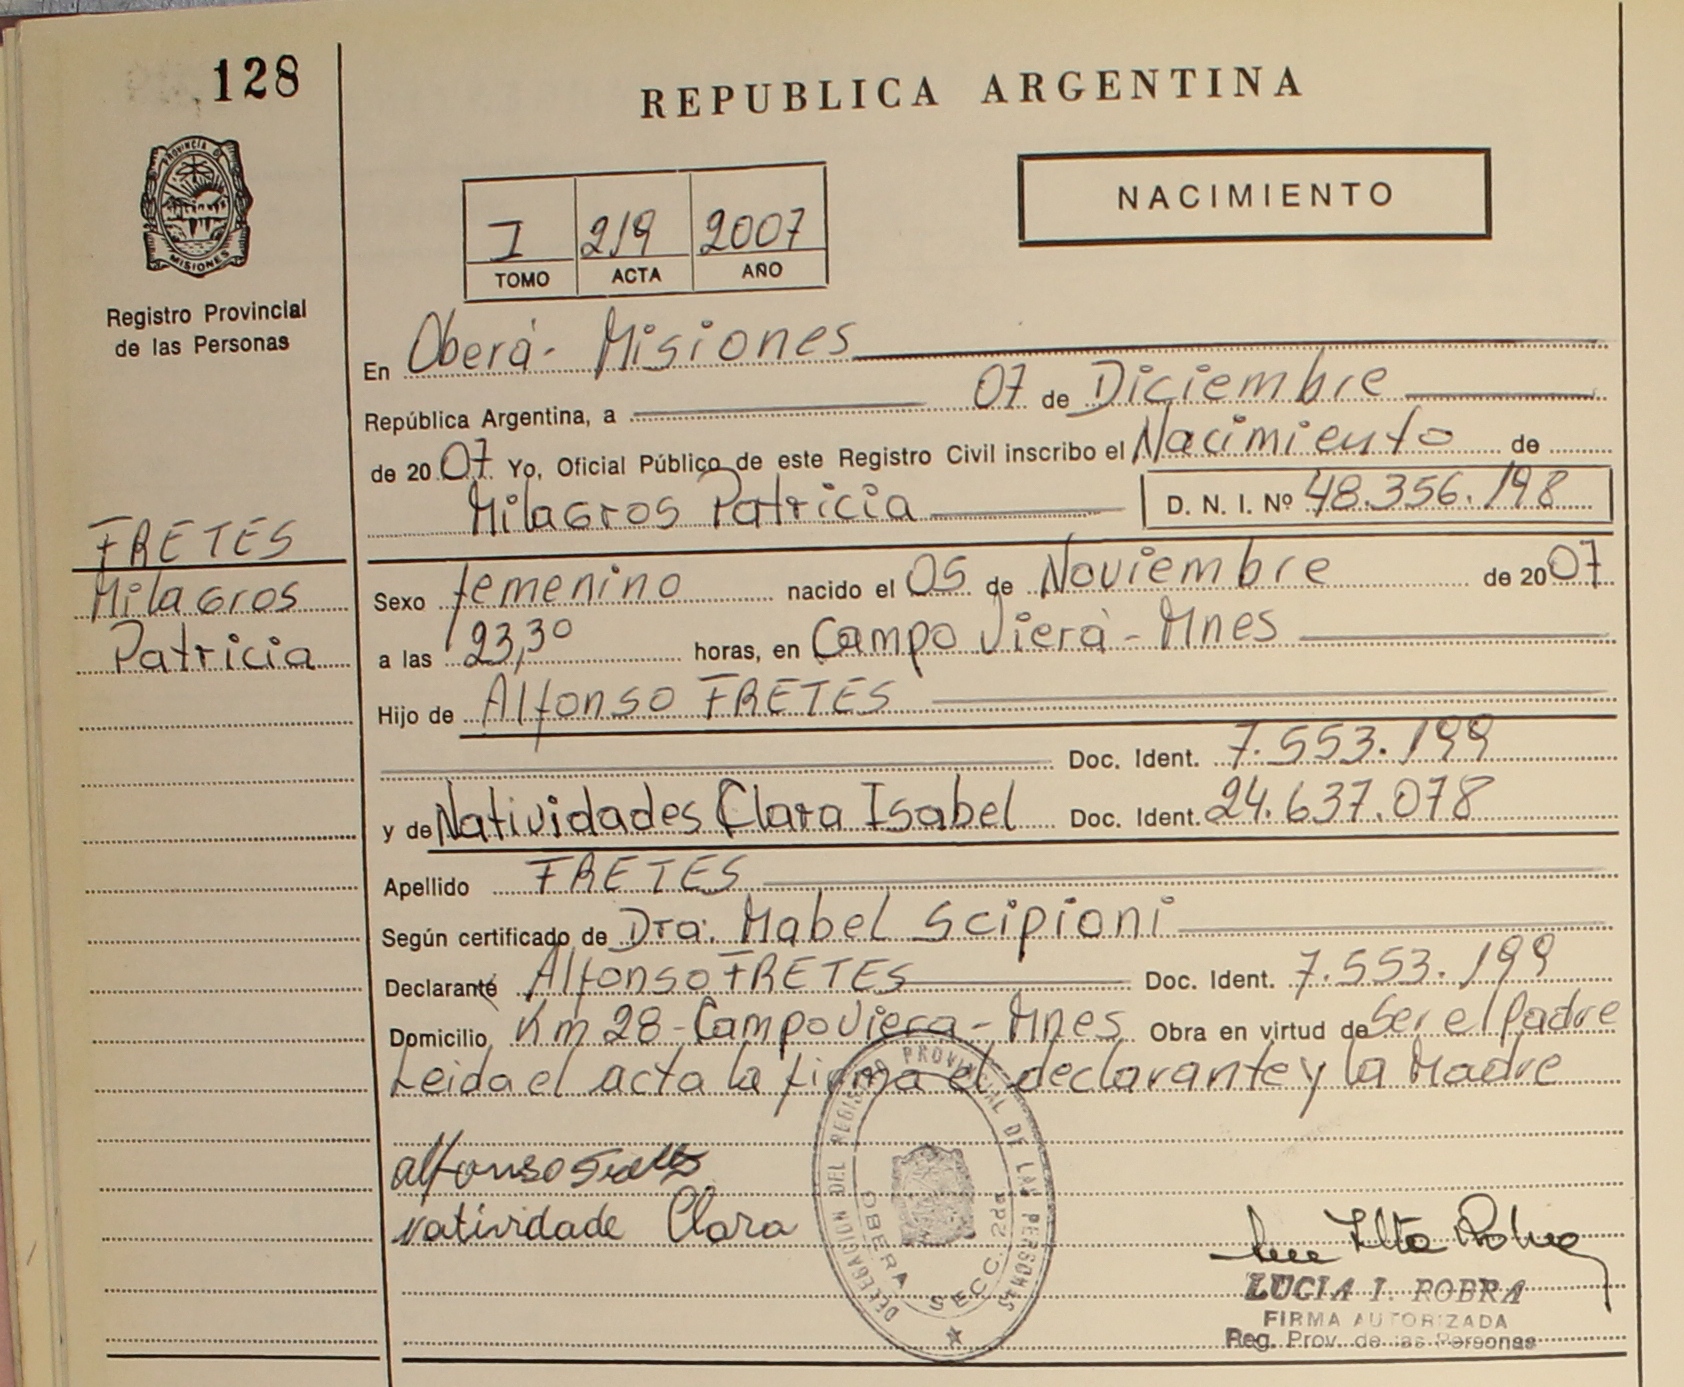 128
REPUBLICA ARGENTINA
PROVINCIA DE
MISIONES
Registro Provincial
de las Personas
NACIMIENTO
I 219 2007
TOMO ACTA AÑO
En Oberá - Misiones
República Argentina, a 07 de Diciembre
de 2007. Yo, Oficial Público de este Registro Civil inscribo el Nacimiento de
Milagros Patricia D. N. I. Nº 48.356.198
FRETES
Milagros
Patricia
Sexo femenino nacido el 05 de Noviembre de 2007
a las 23,30 horas, en Campo Viera - Mnes
Hijo de Alfonso FRETES
Doc. Ident. 7.553.199
y de Natividades Clara Isabel Doc. Ident. 24.637.078
Apellido FRETES
Según certificado de Dra. Mabel Scipioni
Declarante Alfonso FRETES Doc. Ident. 7.553.199
Domicilio Km 28 - Campo Viera - Mnes Obra en virtud de Ser el Padre
Leida el acta la firma el declarante y la Madre
alfonso Fretes
Natividade Clara
DELEGACION DEL REGISTRO PROVINCIAL DE LAS PERSONAS
OBERA SECC. 2da
LUCIA I. ROBRA
FIRMA AUTORIZADA
Reg. Prov. de las Personas